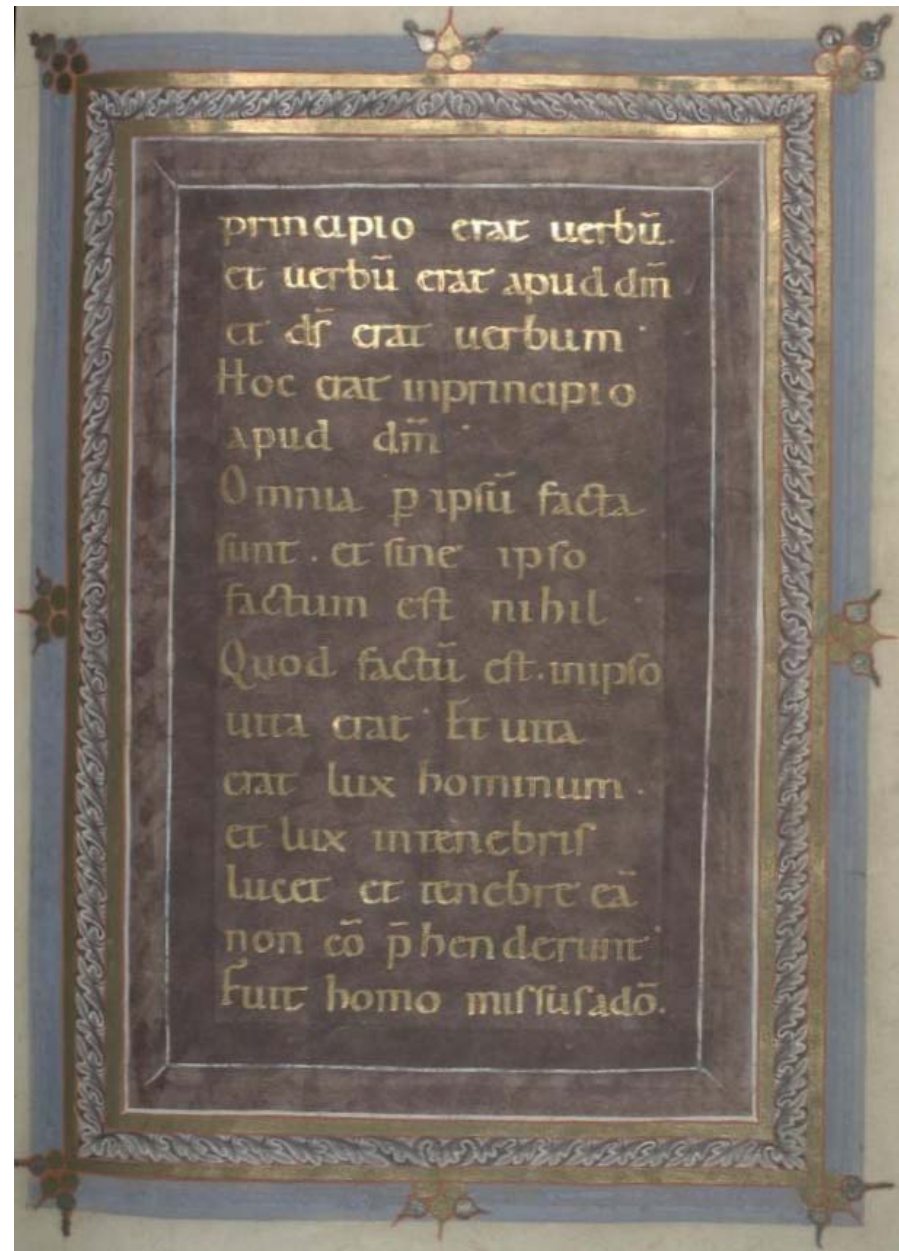 principio erat uerbū.
et uerbū erat apud dm̄
et ds̄ erat uerbum ·
Hoc erat inprincipio
apud dm̄ ·
Omnia ꝑ ipsū facta
sunt . et sine ipso
factum est nihil ·
Quod factū est . inipso
uita erat · Et uita
erat lux hominum .
et lux intenebris
lucet et tenebre eā
non cō p̄henderunt ·
Fuit homo missusadō.